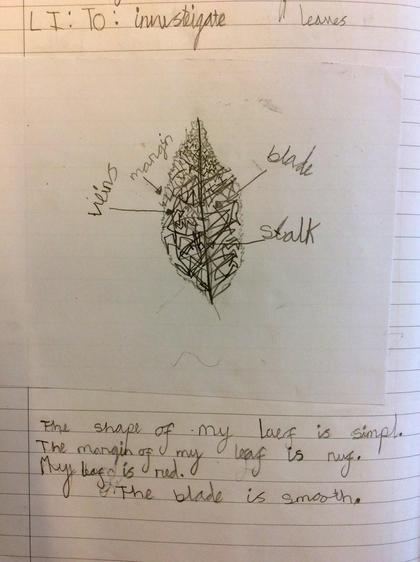 LI: TO: invusteigate leaves
margin
blade
veins
stalk
The shape of my laef is simpl.
The margin of my leaf is ruf.
My leaf is red.
The blade is smooth.